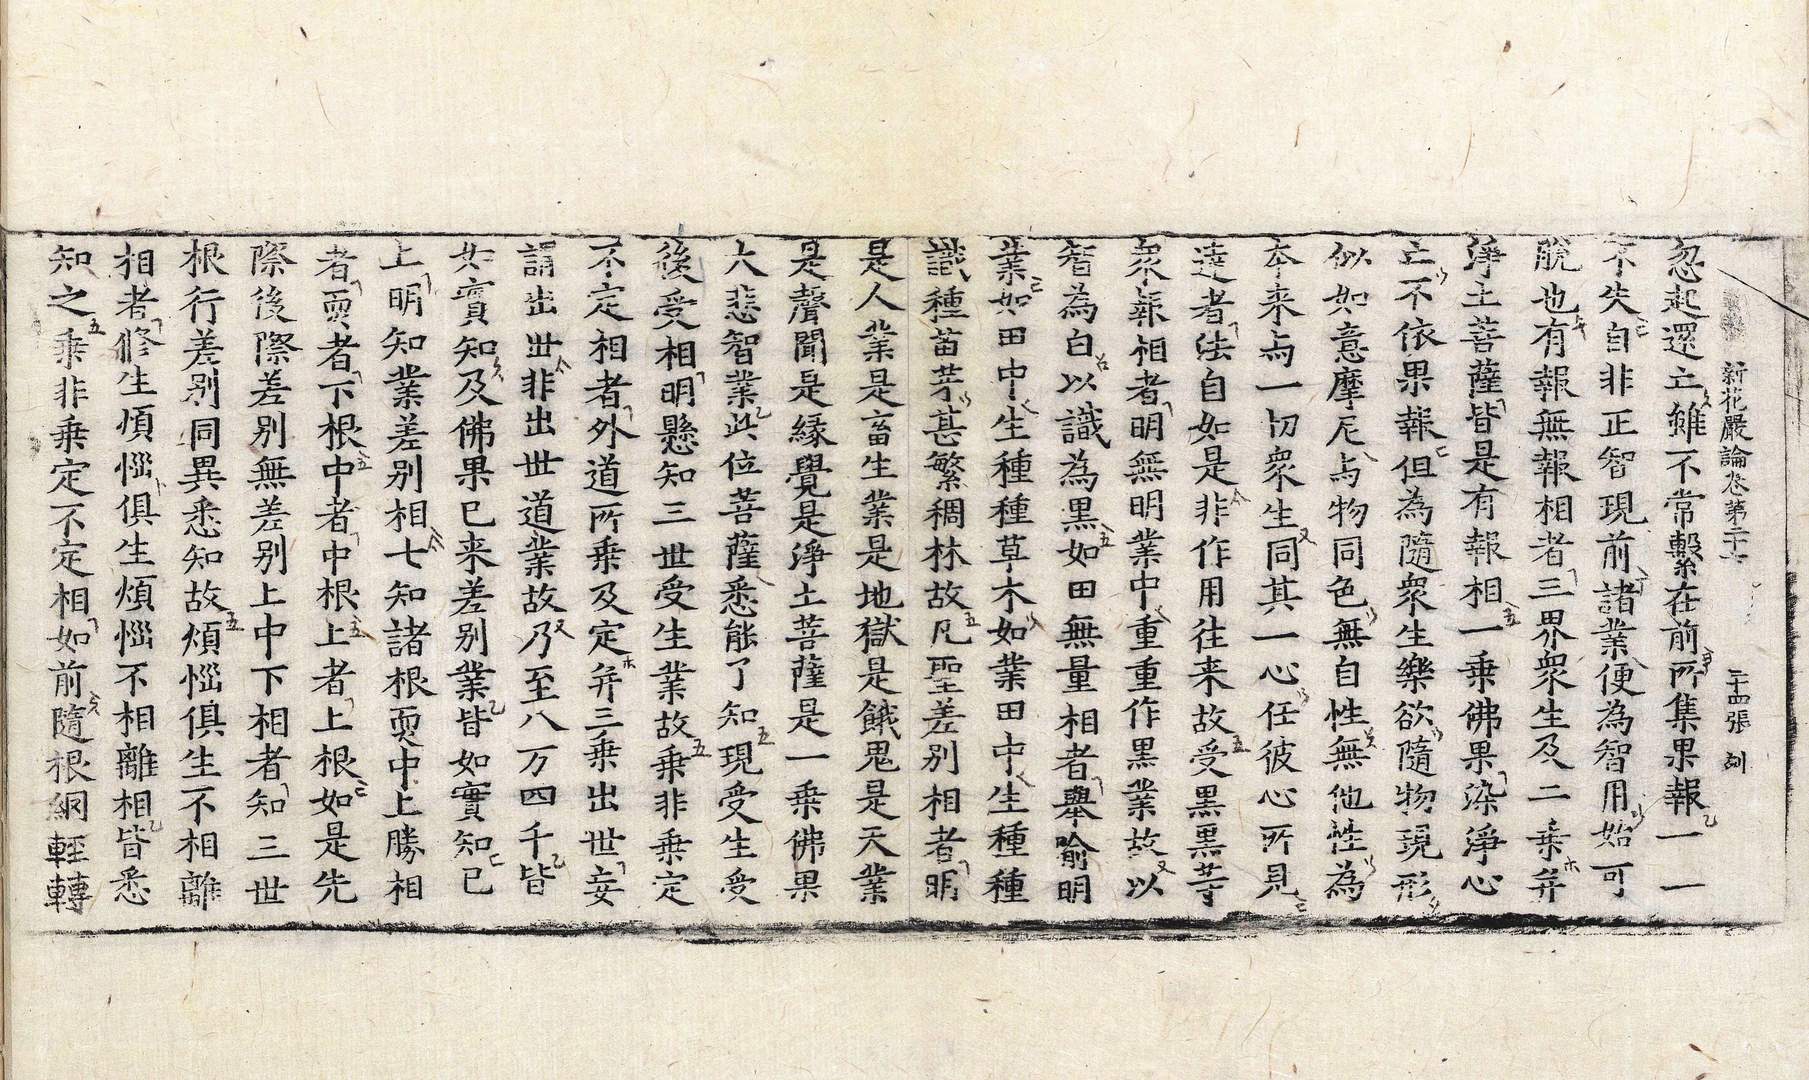 新花嚴論卷第二十七 二十四張
忽起還立雖不常繫在前所集果報一一
不失自非正智現前諸業便為智用始可
脫也有報無報相者三界衆生及二乗并
淨土菩薩皆是有報相一乗佛果染淨心
亡不依果報但為隨衆生樂欲隨物現形
似如意摩尼与物同色無自性無他性為
本来与一切衆生同其一心任彼心所見
達者法自如是非作用往来故受黒黒等
衆報相者明無明業中重重作黒業故以
智為白以識為黒如田無量相者舉喻明
業如田中生種種草木如業田中生種種
識種苗芽甚繁稠林故凡聖差別相者明
是人業是畜生業是地獄是餓鬼是天業
是聲聞是縁覺是淨土菩薩是一乗佛果
大悲智業此位菩薩悉能了知現受生受
後受相明懸知三世受生業故乗非乗定
不定相者外道所乗及定并三乗出世妄
謂出世非出世道業故乃至八万四千皆
如實知及佛果已来差別業皆如實知已
上明知業差别相七知諸根耎中上勝相
者耎者下根中者中根上者上根如是先
際後際差别無差别上中下相者知三世
根行差别同異悉知故煩惱俱生不相離
相者修生煩惱俱生煩惱不相離相皆悉
知之乗非乗定不定相如前隨根網輕轉